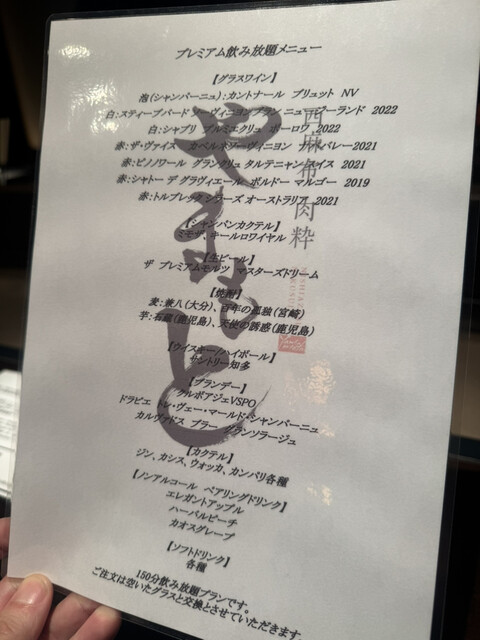 プレミアム飲み放題メニュー
【グラスワイン】
泡(シャンパーニュ):カントナール ブリュット NV
白:スティープバード ソーヴィニヨンブラン ニュージーランド 2022
白:シャブリ プルミエクリュ ボーロワ 2022
赤:ザ・ヴァイス カベルネソーヴィニヨン ナパバレー2021
赤:ピノノワール グランクリュ タルテニャン スイス 2021
赤:シャトー デ グラヴィエール ボルドー マルゴー 2019
赤:トルブレック シラーズ オーストラリア 2021
【シャンパンカクテル】
ミモザ、キールロワイヤル
【生ビール】
ザ プレミアムモルツ マスターズドリーム
【焼酎】
麦:兼八(大分)、百年の孤独(宮崎)
芋:石蔵(鹿児島)、天使の誘惑(鹿児島)
【ウイスキー/ハイボール】
サントリー知多
【ブランデー】
クルボアジェVSPO
ドラピエ トレ・ヴェー・マールド・シャンパーニュ
カルヴァドス ブラー グランソラージュ
【カクテル】
ジン、カシス、ウォッカ、カンパリ各種
【ノンアルコール ペアリングドリンク】
エレガントアップル
ハーバルピーチ
カオスグレープ
【ソフトドリンク】
各種
150分飲み放題プランです。
ご注文は空いたグラスと交換とさせていただきます。
西麻布 肉粋
やまもと